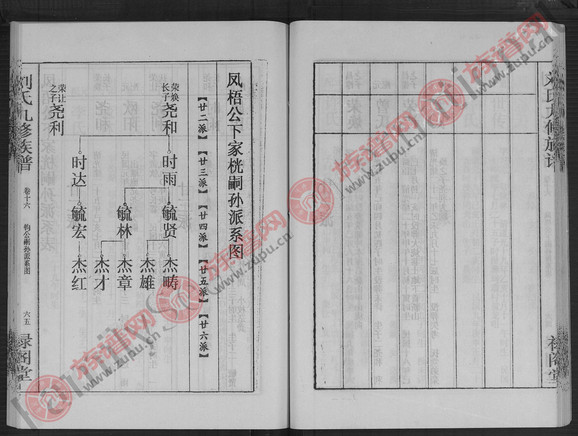 凤梧公下家桄嗣孙派系图
【廿二派】【廿三派】【廿四派】【廿五派】【廿六派】
荣焕长子尧和
时雨
毓贤
杰畴
杰雄
毓林
杰章
杰才
荣让之子尧利
时达
毓宏
杰红
刘氏九修族谱
卷十六
钧公嗣孙派系图
六五
禄阁堂
刘氏九修族谱
禄阁堂
族谱网
www.zupu.cn
族谱网
www.zupu.cn
族谱网
www.zupu.cn